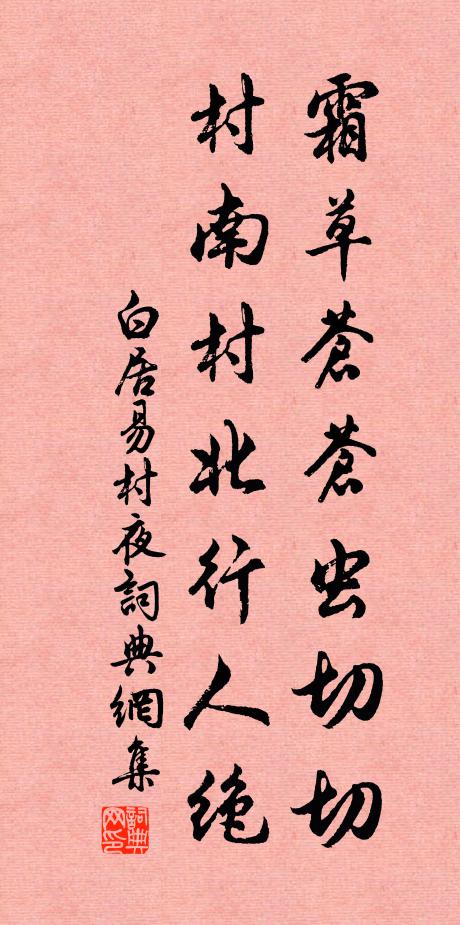 霜草蒼蒼虫切切
村南村北行人绝
白居易村夜詞典網集
詞典网印